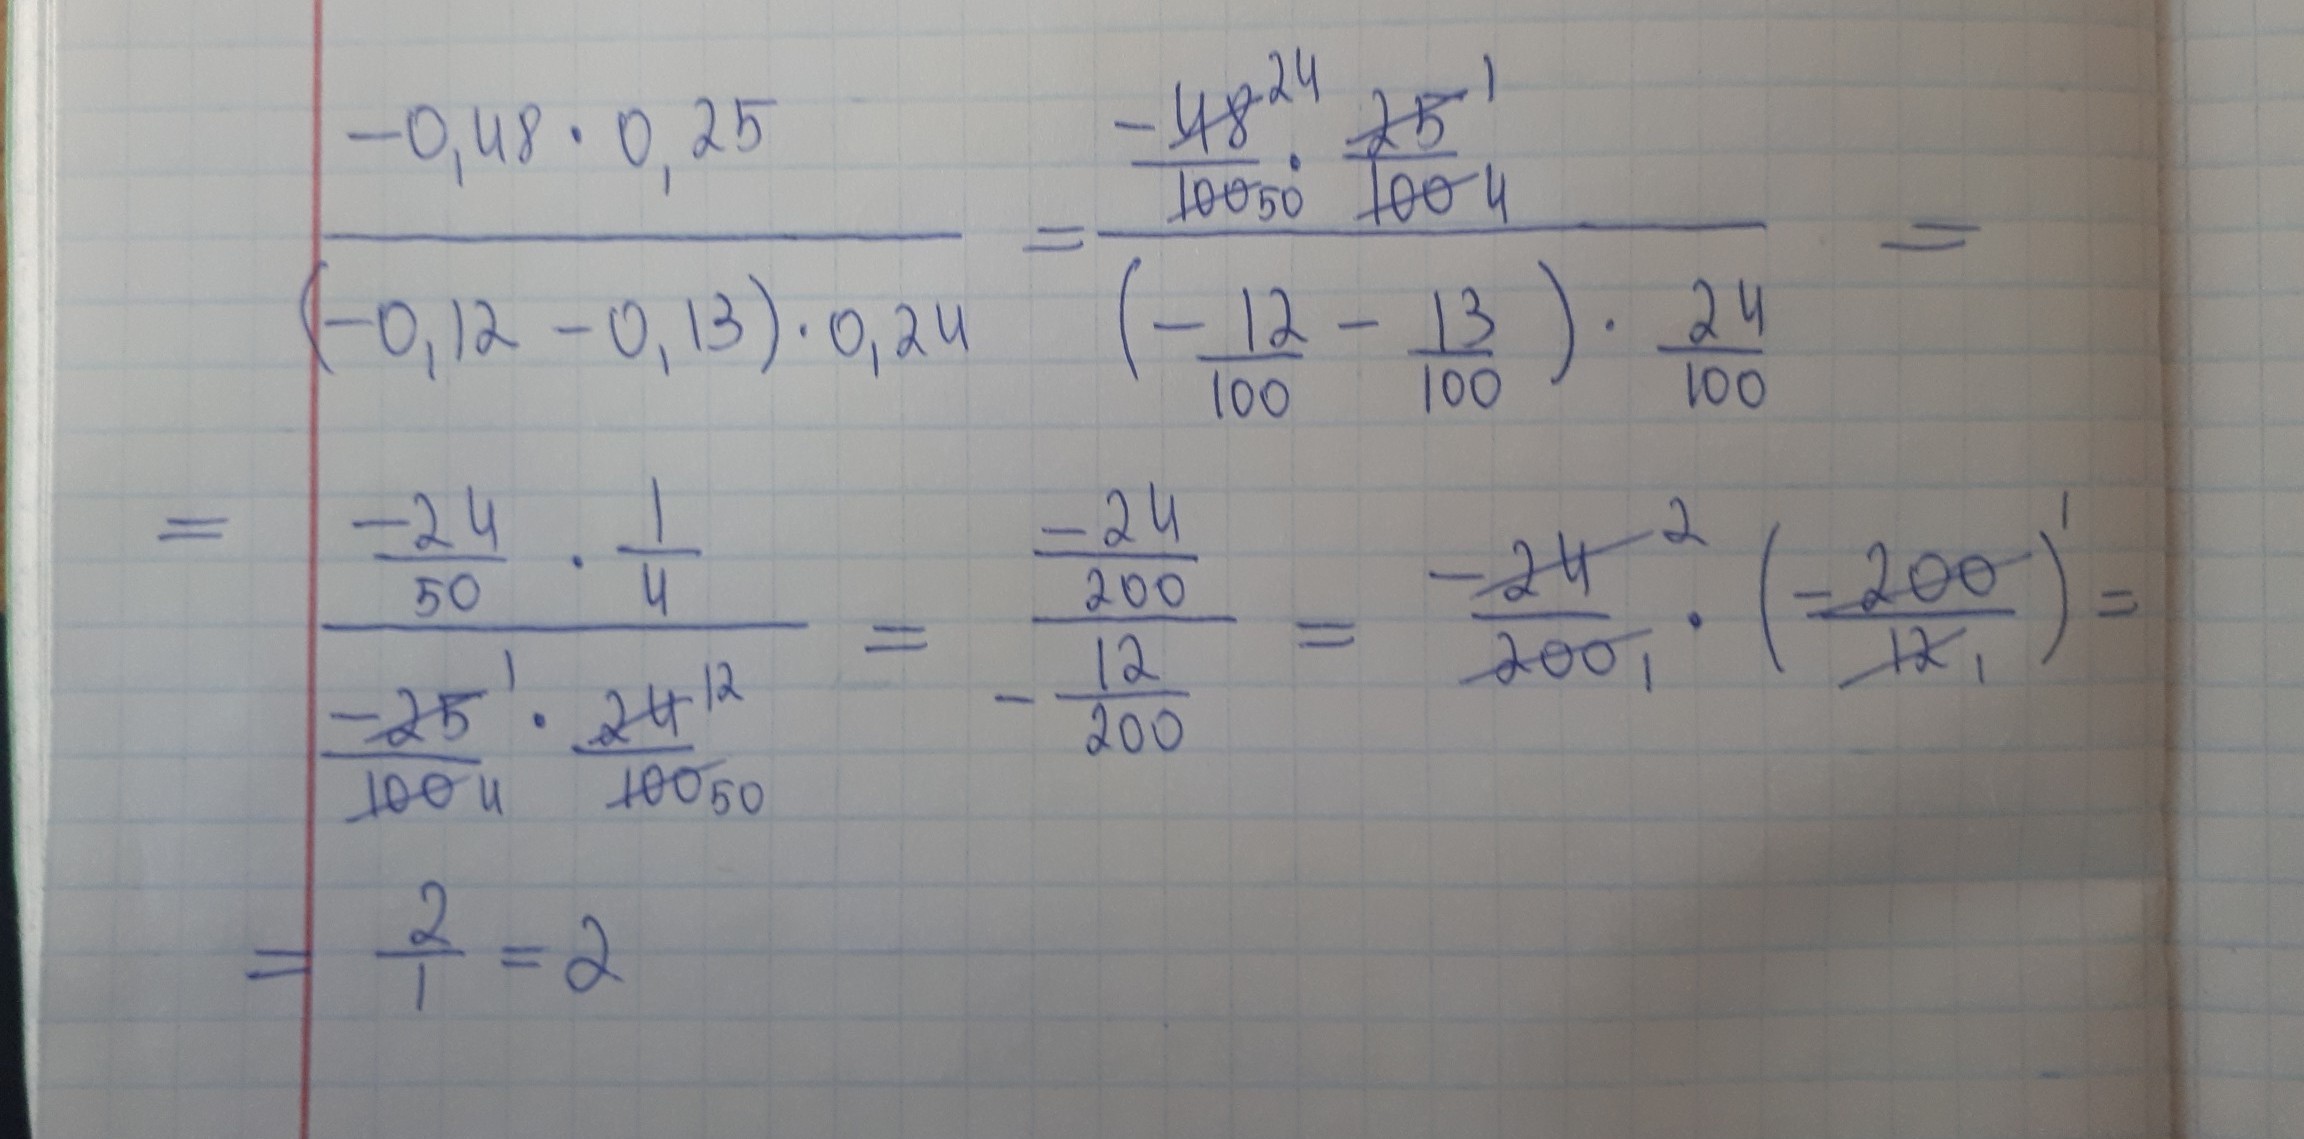 −0,48 · 0,25 / (−0,12 − 0,13) · 0,24 = −48 24 / 100 50 · 25 1 / 100 4 / (− 12/100 − 13/100) · 24/100 =
= −24/50 · 1/4 / −25 1 / 100 4 · 24 12 / 100 50 = −24/200 / − 12/200 = −24 2 / 200 1 · (−200 1 / 12 1) =
= 2/1 = 2